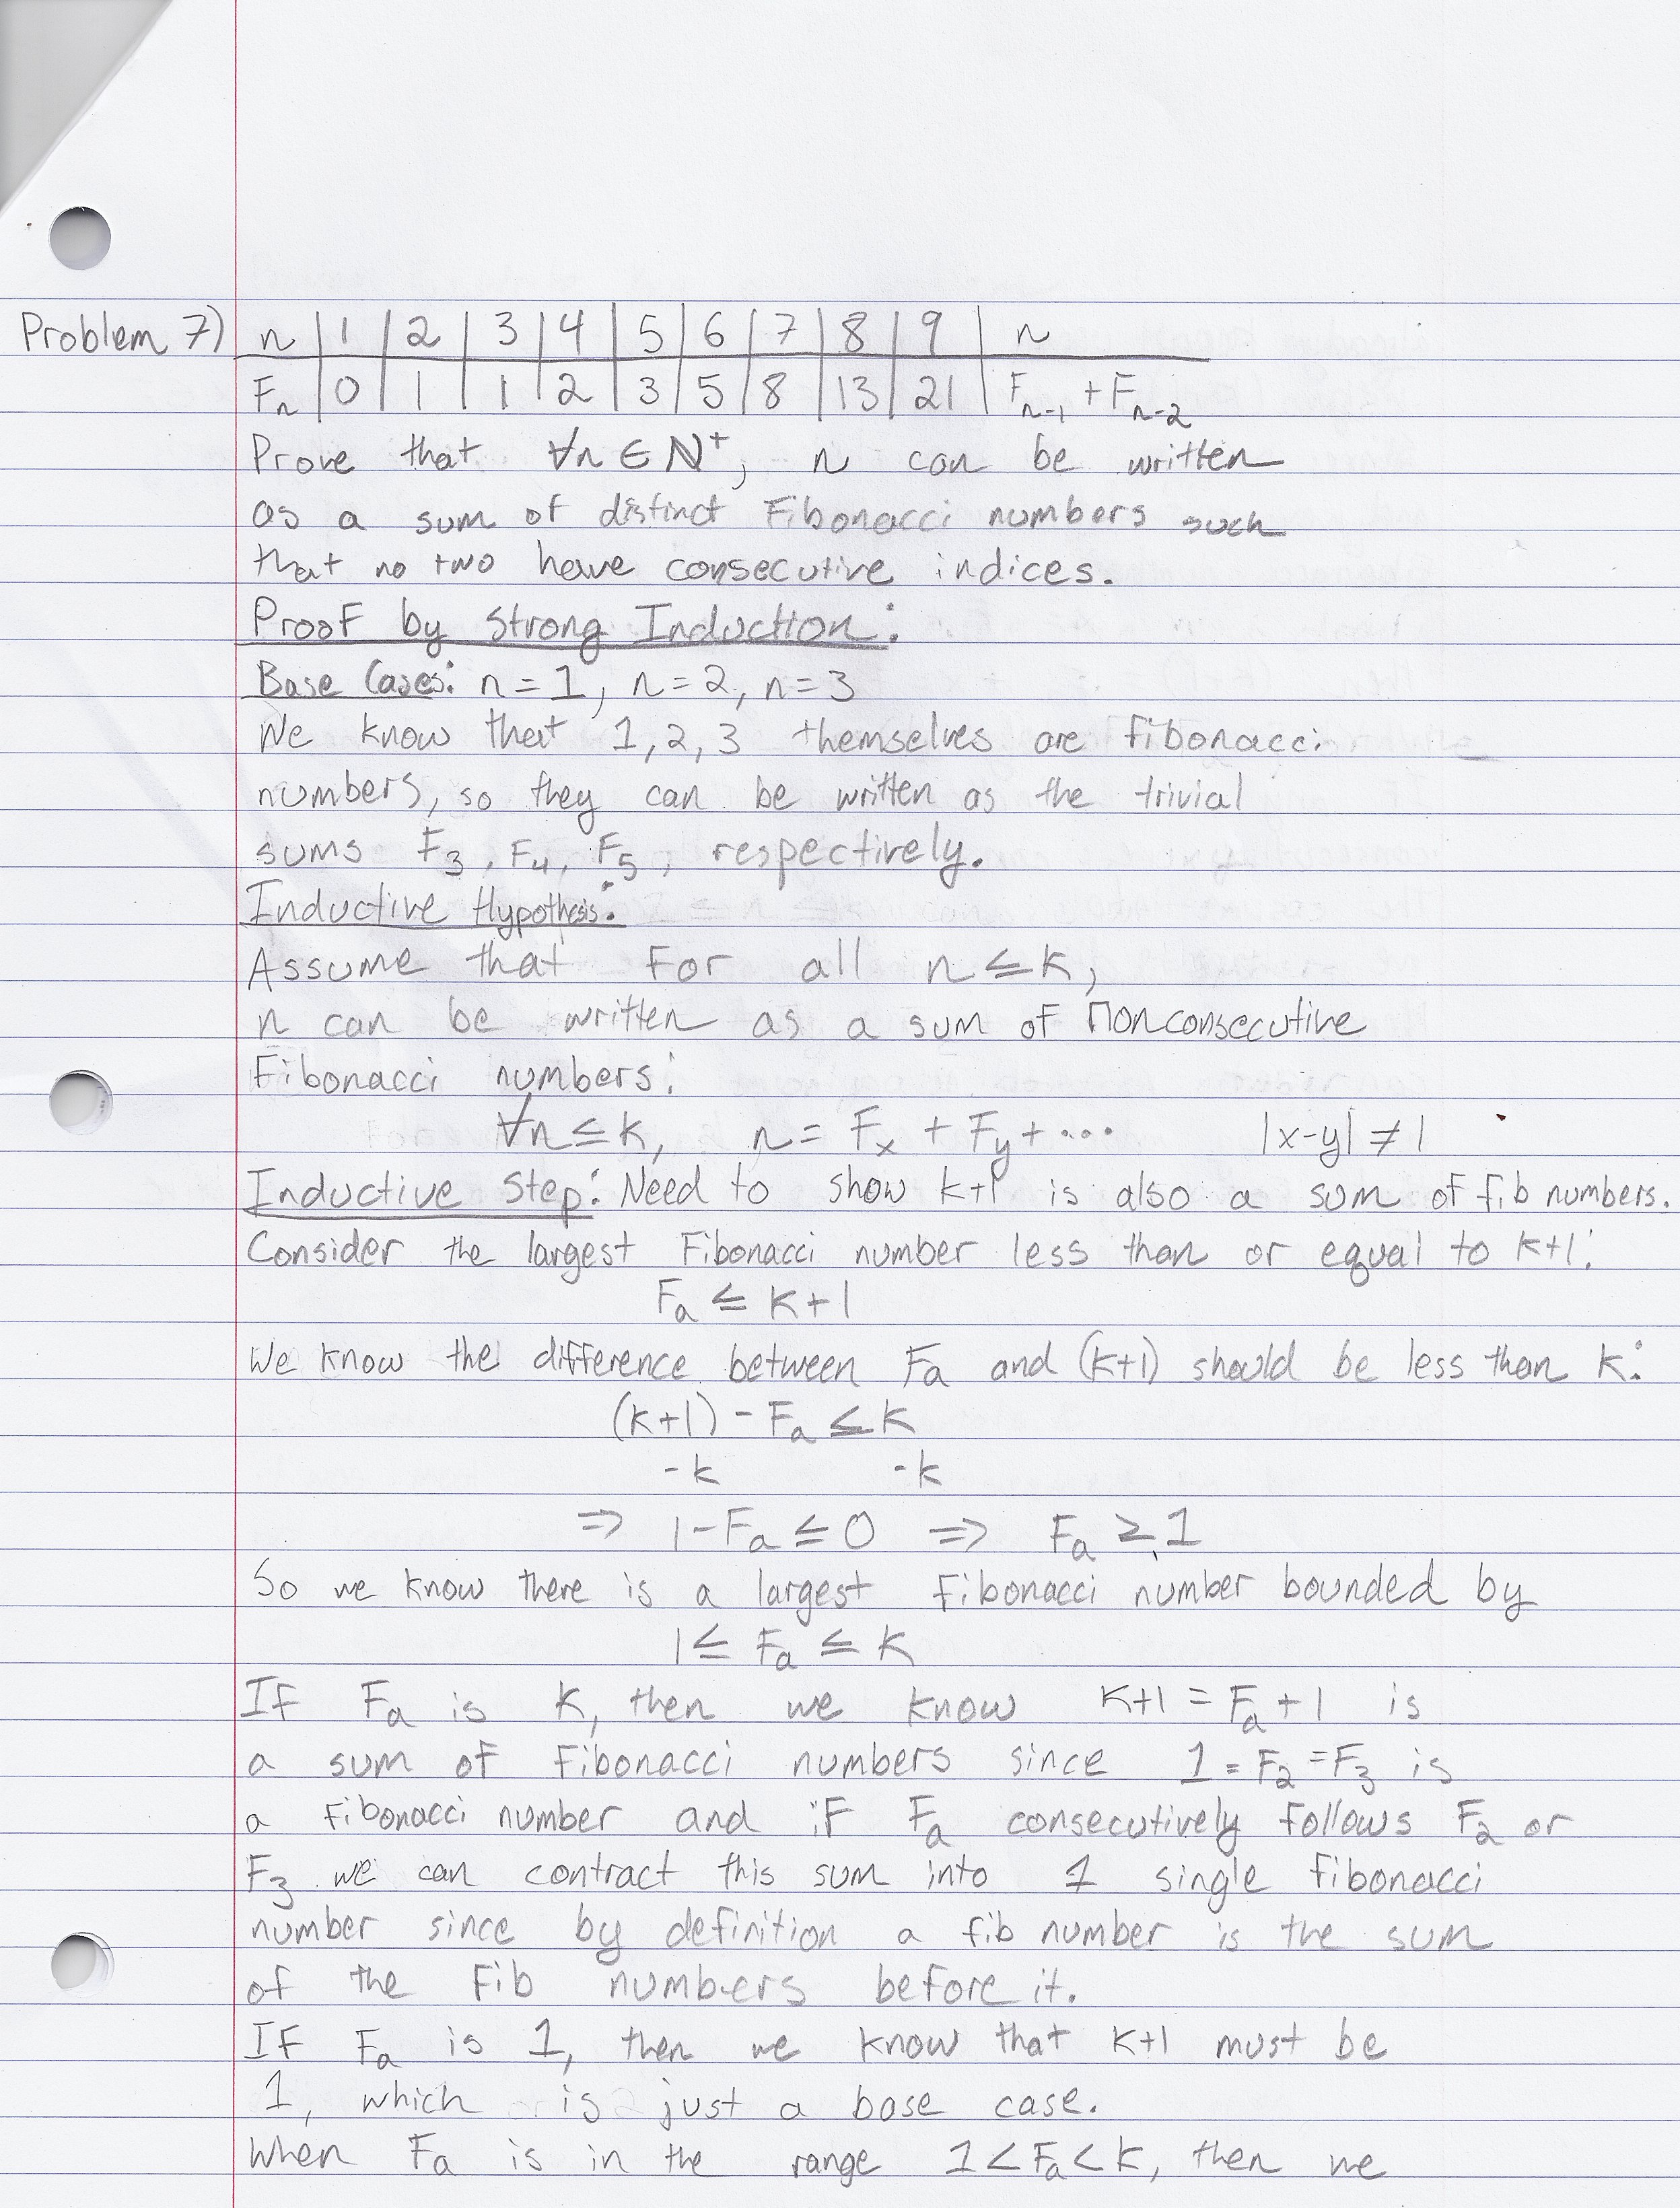 Problem 7) n | 1 | 2 | 3 | 4 | 5 | 6 | 7 | 8 | 9 | n
Fₙ | 0 | 1 | 1 | 2 | 3 | 5 | 8 | 13 | 21 | Fₙ₋₁ + Fₙ₋₂
Prove that ∀n ∈ ℕ⁺, n can be written
as a sum of distinct Fibonacci numbers such
that no two have consecutive indices.
Proof by Strong Induction:
Base Cases: n = 1, n = 2, n = 3
We know that 1, 2, 3 themselves are fibonacci
numbers, so they can be written as the trivial
sums F₃, F₄, F₅, respectively.
Inductive Hypothesis:
Assume that for all n ≤ k,
n can be written as a sum of nonconsecutive
Fibonacci numbers:
∀n ≤ k, n = Fₓ + Fᵧ + ... |x-y| ≠ 1
Inductive Step: Need to show k+1 is also a sum of fib numbers.
Consider the largest Fibonacci number less than or equal to k+1:
Fₐ ≤ k+1
We know the difference between Fₐ and (k+1) should be less than k:
(k+1) - Fₐ ≤ k
-k -k
⇒ 1 - Fₐ ≤ 0 ⇒ Fₐ ≥ 1
So we know there is a largest Fibonacci number bounded by
1 ≤ Fₐ ≤ k
If Fₐ is k, then we know k+1 = Fₐ + 1 is
a sum of Fibonacci numbers since 1 = F₂ = F₃ is
a fibonacci number and if Fₐ consecutively follows F₂ or
F₃ we can contract this sum into 1 single fibonacci
number since by definition a fib number is the sum
of the fib numbers before it.
If Fₐ is 1, then we know that k+1 must be
1, which is just a base case.
When Fₐ is in the range 1 < Fₐ < k, then we